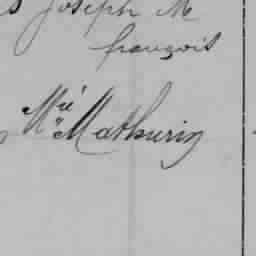 Joseph M
françois
Mie Mathurin